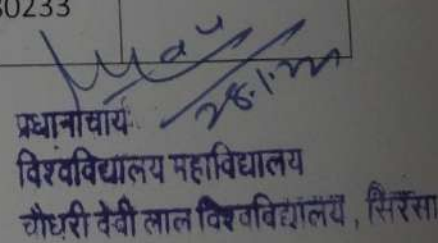 30233
28.1.22
प्रधानाचार्य
विश्वविद्यालय महाविद्यालय
चौधरी देवी लाल विश्वविद्यालय, सिरसा